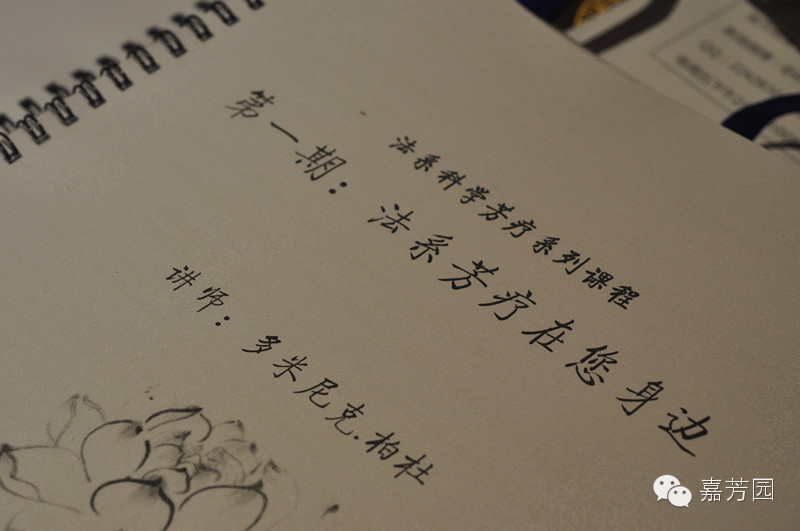 法系科学芳疗系列课程
第一期：法系芳疗在您身边
讲师：多米尼克.柏杜
嘉芳园